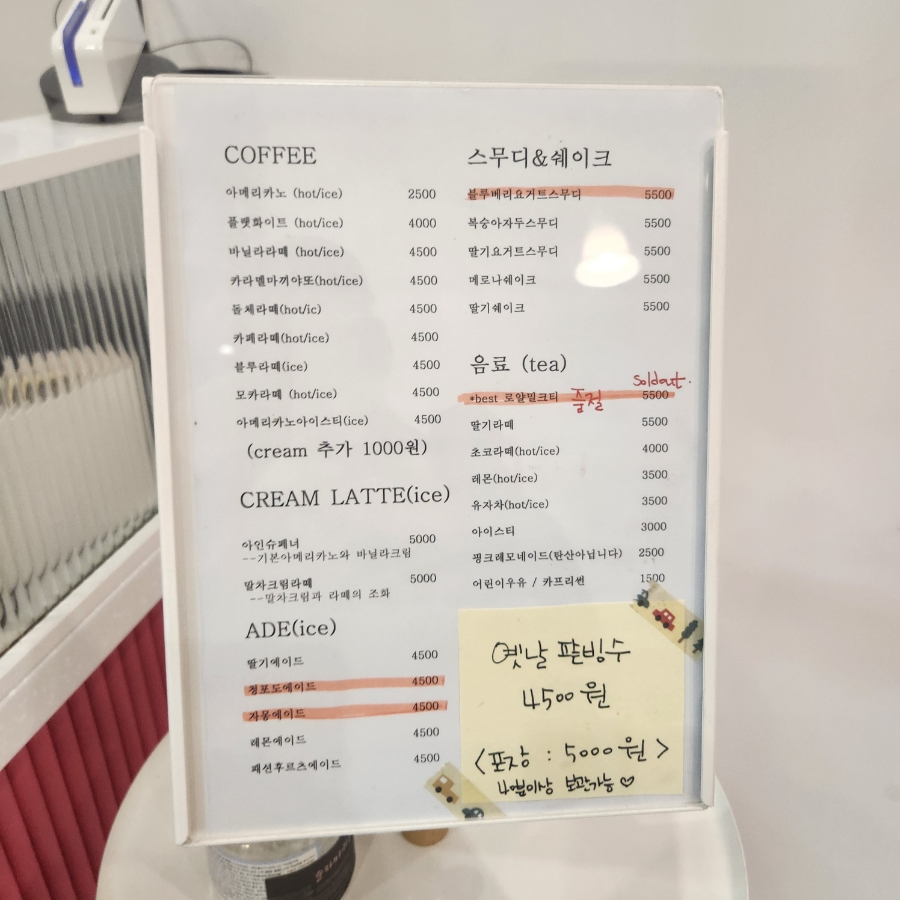 COFFEE
아메리카노 (hot/ice) 2500
플랫화이트 (hot/ice) 4000
바닐라라떼 (hot/ice) 4500
카라멜마끼야또(hot/ice) 4500
돌체라떼(hot/ic) 4500
카페라떼(hot/ice) 4500
블루라떼(ice) 4500
모카라떼 (hot/ice) 4500
아메리카노아이스티(ice) 4500
(cream 추가 1000원)
CREAM LATTE(ice)
아인슈페너 5000
--기본아메리카노와 바닐라크림
말차크림라떼 5000
--말차크림과 라떼의 조화
ADE(ice)
딸기에이드 4500
청포도에이드 4500
자몽에이드 4500
레몬에이드 4500
패션후르츠에이드 4500
스무디&쉐이크
블루베리요거트스무디 5500
복숭아자두스무디 5500
딸기요거트스무디 5500
메로나쉐이크 5500
딸기쉐이크 5500
음료 (tea)
Soldout.
*best 로얄밀크티 품절 5500
딸기라떼 5500
초코라떼(hot/ice) 4000
레몬(hot/ice) 3500
유자차(hot/ice) 3500
아이스티 3000
핑크레모네이드(탄산아닙니다) 2500
어린이우유 / 카프리썬 1500
옛날 팥빙수
4500원
<포장 : 5000원>
보관가능 ♡